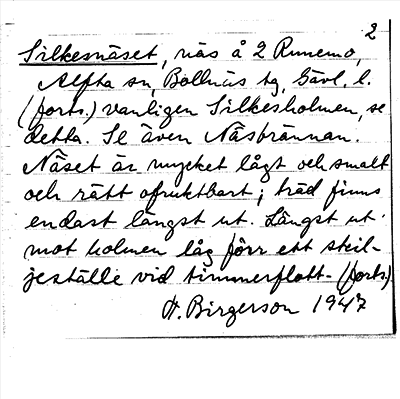 2
Silkesnäset, näs å 2 Runemo,
Alfta sn, Bollnäs tg, Gävl. l.
(forts.) vanligen Silkesholmen, se
detta. Se även Näsbrännan.
Näset är mycket lågt och smalt
och rätt ofruktbart; träd finns
endast längst ut. Längst ut
mot holmen låg förr ett skil-
jeställe vid timmerflott- (forts.)
H. Birgerson 1947